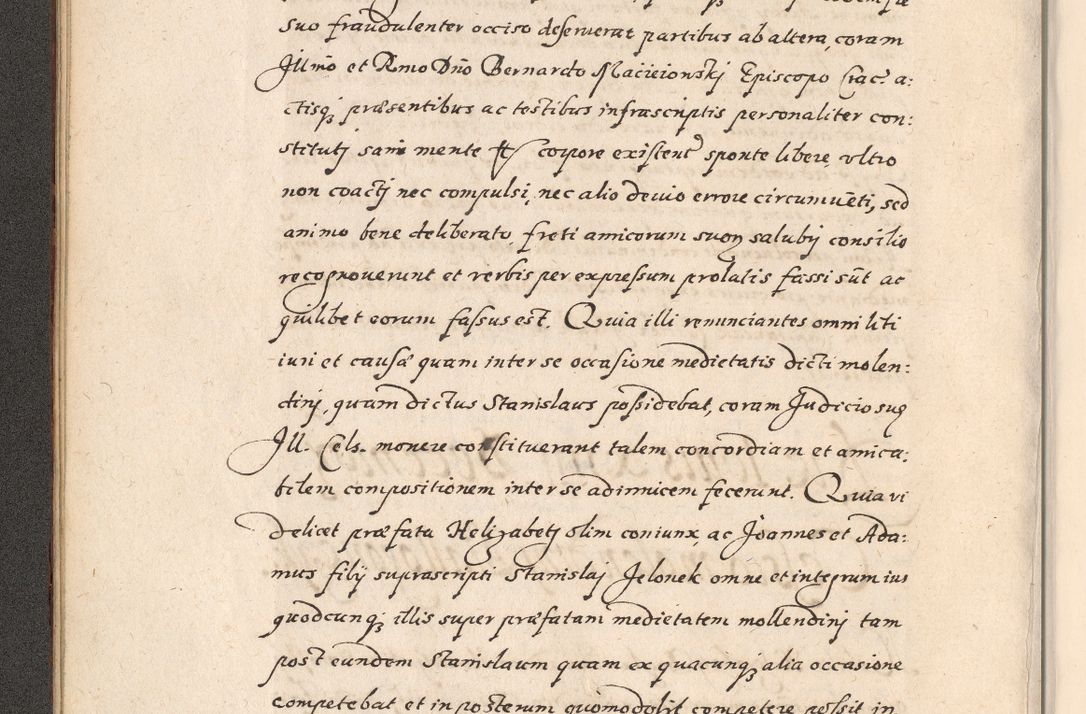 suo fraudulenter occiso deseruerat partibus ab altera, coram
Jllmo et Rmo Dno Bernardo Macieionskj Episcopo Crac. a:
ctisq₃ præsentibus ac testibus infrascriptis personaliter con:
stitutj sani mente et corpore existent sponte libere, vltro
non coactj nec compulsi, nec alio deuio errore circumuēti, sed
animo bene deliberato, freti amicorum suoꝝ salubrj consilio
recognouerunt et verbis per expressum prolatis fassi sūt ac
quilibet eorum fassus est. Quia illi renunciantes omni liti
iuri et causæ quam inter se occasione medietatis dicti molen:
dinj, quam dictus Stanislaus possidebat, coram Judicio suę
Jll. Cels. monere constituerant talem concordiam et amica:
bilem compositionem inter se adinuicem fecerunt. Quia vi
delicet præfata Helizabetj olim coniunx, ac Joannes et Ada:
mus filij suprascripti Stanislaj Jelonek omne et integrum ius
quodcunq₃ illis super præfatam medietatem mollendinj tam
post eundem Stanislaum quam ex quacunq₃ alia occasione
competebat et in posterum quomodolit competere possit in